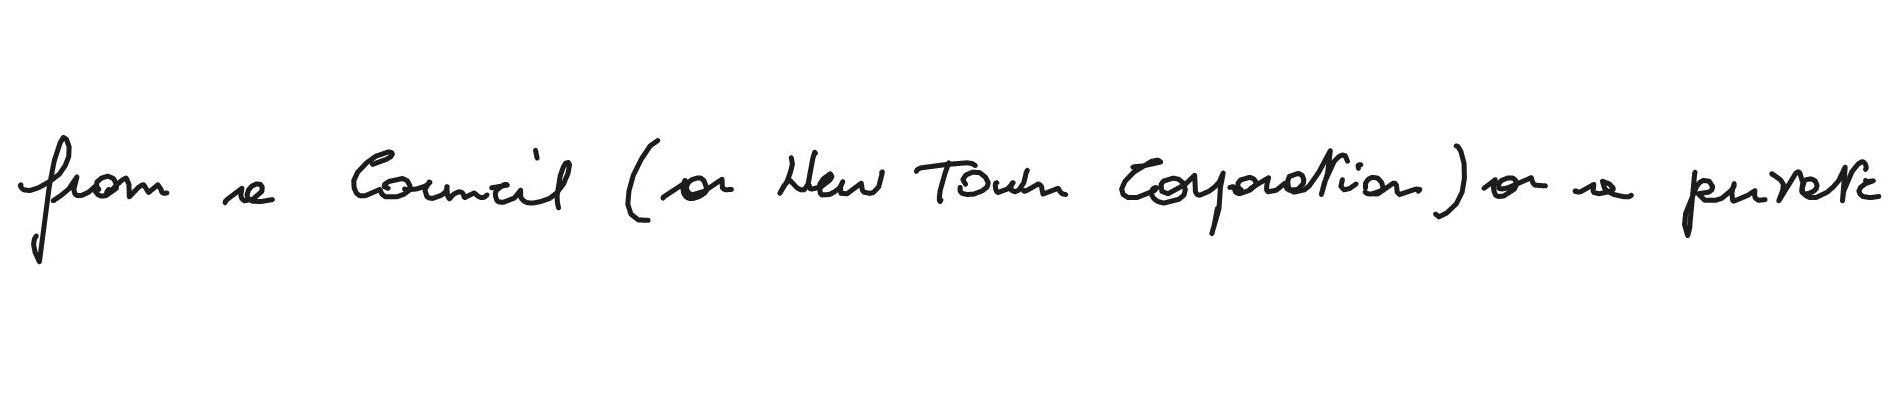 from a Council (or New Town Corporation) or a private